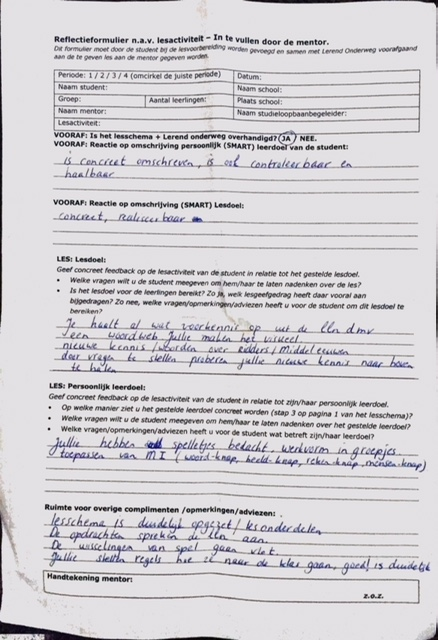 Reflectieformulier n.a.v. lesactiviteit – In te vullen door de mentor.
Dit formulier moet door de student bij de lesvoorbereiding worden gevoegd en samen met Lerend Onderweg voorafgaand
aan de te geven les aan de mentor gegeven worden.
Periode: 1 / 2 / 3 / 4 (omcirkel de juiste periode) Datum:
Naam student: Naam school:
Groep: Aantal leerlingen: Plaats school:
Naam mentor: Naam studieloopbaanbegeleider:
Lesactiviteit:
VOORAF: Is het lesschema + Lerend onderweg overhandigd? JA / NEE.
VOORAF: Reactie op omschrijving persoonlijk (SMART) leerdoel van de student:
is concreet omschreven, is ook controleerbaar en
haalbaar
VOORAF: Reactie op omschrijving (SMART) Lesdoel:
concreet, realiseerbaar
LES: Lesdoel:
Geef concreet feedback op de lesactiviteit van de student in relatie tot het gestelde lesdoel.
• Welke vragen wilt u de student meegeven om hem/haar te laten nadenken over de les?
• Is het lesdoel voor de leerlingen bereikt? Zo ja, welk lesgeefgedrag heeft daar vooral aan
bijgedragen? Zo nee, welke vragen/opmerkingen/adviezen heeft u voor de student om dit lesdoel te
bereiken?
Je haalt al wat voorkennis op uit de lln dmv
een woordweb Jullie maken het visueel
nieuwe kennis / woorden over ridders / Middeleeuwen
door vragen te stellen proberen jullie nieuwe kennis naar boven
te halen
LES: Persoonlijk leerdoel:
Geef concreet feedback op de lesactiviteit van de student in relatie tot zijn/haar persoonlijk leerdoel.
• Op welke manier ziet u het gestelde leerdoel concreet worden (stap 3 op pagina 1 van het lesschema)?
• Welke vragen wilt u de student meegeven om hem/haar te laten nadenken over het gestelde leerdoel?
• Welke vragen/opmerkingen/adviezen heeft u voor de student wat betreft zijn/haar leerdoel?
Jullie hebben spelletjes bedacht, werkvorm in groepjes
toepassen van MI (woord-knap, beeld-knap, reken-knap, mensen-knap)
Ruimte voor overige complimenten /opmerkingen/adviezen:
lesschema is duidelijk opgezet / lesonderdelen
De opdrachten spreken de lln aan.
De wisselingen van spel gaan vlot.
Jullie stellen regels hoe ze naar de klas gaan, goed! is duidelijk
Handtekening mentor:
z.o.z.